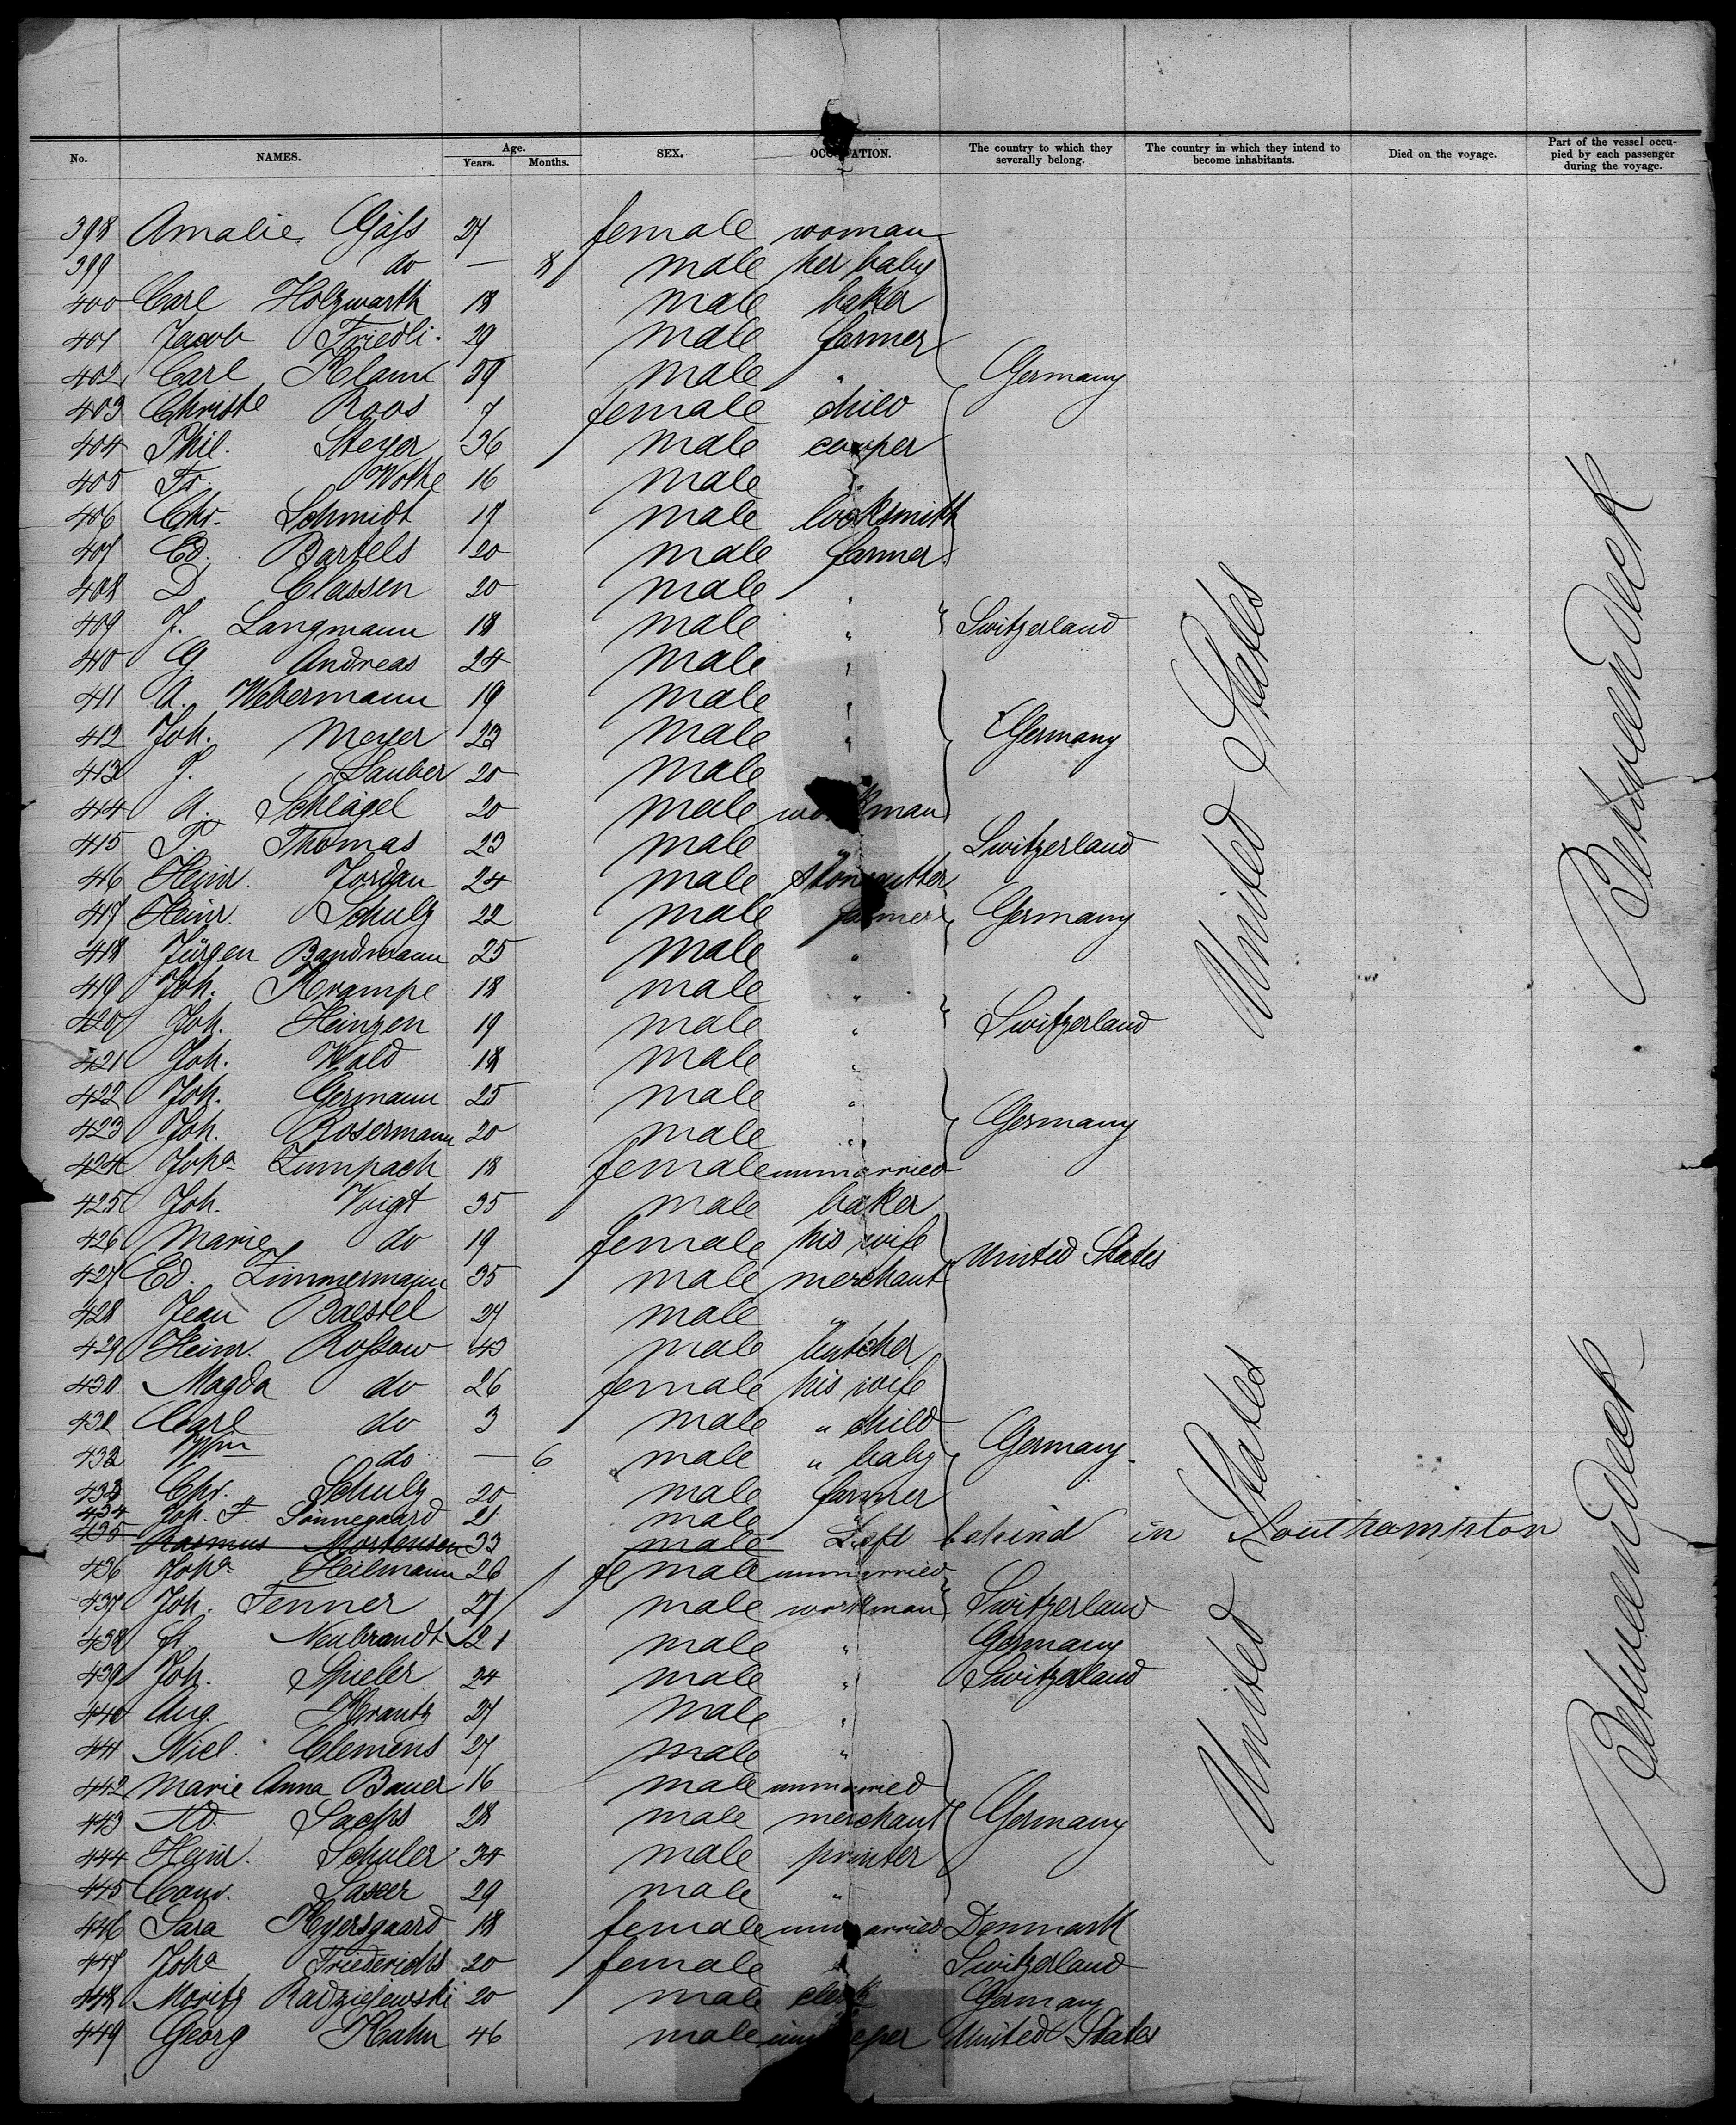 No. NAMES. Age. Years. Months. SEX. OCCUPATION. The country to which they severally belong. The country in which they intend to become inhabitants. Died on the voyage. Part of the vessel occupied by each passenger during the voyage.
398 Amalie Gäss 27 female woman
399 do — 8 male her baby
400 Carl Holzwarth 18 male baker
401 Jacob Friedli 29 male farmer
402 Carl Klamt 39 male " Germany
403 Christe Roos 7 female child
404 Phil. Steyer 36 male cooper
405 Fr. Wothe 16 male "
406 Chr. Schmidt 17 male locksmith
407 Ed. Bartels 20 male farmer
408 D. Classen 20 male "
409 J. Langmann 18 male " Switzerland
410 G. Andreas 24 male "
411 A. Webermann 19 male "
412 Joh. Meyer 23 male " Germany
413 J. Sauber 20 male "
414 A. Schlägel 20 male workman
415 P. Thomas 23 male " Switzerland
416 Heinr. Jordan 24 male stonecutter
417 Heinr. Schulz 22 male farmer Germany
418 Jürgen Bandmann 25 male "
419 Joh. Krampe 18 male "
420 Joh. Heinzen 19 male " Switzerland
421 Joh. Wald 18 male "
422 Joh. Germann 25 male "
423 Joh. Rosermann 20 male " Germany
424 Joha Zumpach 18 female unmarried
425 Joh. Voigt 35 male baker
426 Marie do 19 female his wife
427 Ed. Zimmermann 35 male merchant United States
428 Jean Baestel 27 male "
429 Heinr. Rossow 43 male butcher
430 Magda do 26 female his wife
431 Carl do 3 male " child
432 Wm do — 6 male " baby Germany
433 Chr. Schulz 20 male farmer
434 Joh. F. Sonnegaard 21 male "
435 Rasmus Mortensen 33 male Left behind in Southampton
436 Joha Heilmann 26 female unmarried
437 Joh. Fenner 27 male workman Switzerland
438 A. Neubrandt 21 male " Germany
439 Joh. Spieler 24 male " Switzerland
440 Aug. Krantz 27 male "
441 Nicl. Clemens 27 male "
442 Marie Anna Bauer 16 male unmarried
443 Ad. Sachs 28 male merchant Germany
444 Heinr. Schuler 34 male printer
445 Conr. Saxer 29 male "
446 Sara Kyersgaard 18 female unmarried Denmark
447 Joha Friederichs 20 female " Switzerland
448 Moritz Radziejewski 20 male clerk Germany
449 Georg Hahn 46 male innkeeper United States
United States
United States
Between Deck
Between Deck